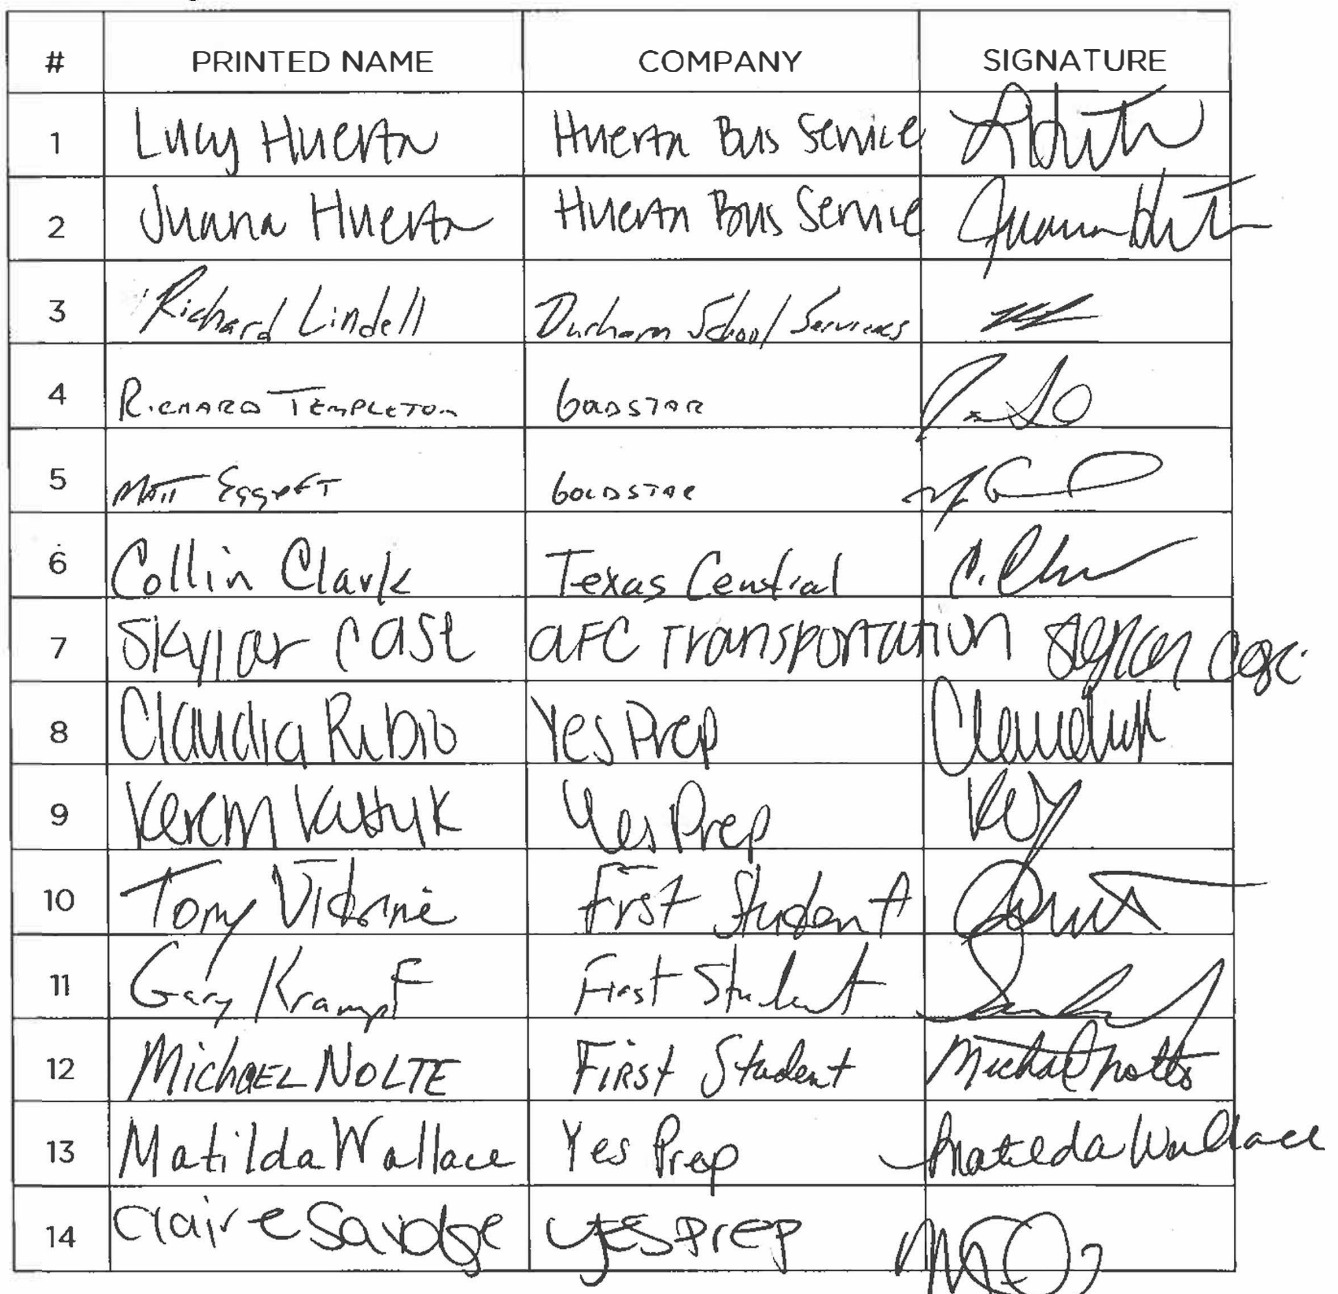 # PRINTED NAME COMPANY SIGNATURE
1 Lucy Huerta Huerta Bus Service
2 Juana Huerta Huerta Bus Service Juana
3 Richard Lindell Durham School Services
4 RICHARD TEMPLETON GOLDSTAR
5 Matt GOLDSTAR
6 Collin Clark Texas Central C.
7 Skylar Case AFC Transportation Skylar Case
8 Claudia Rubio Yes Prep
9 Kerem Yes Prep
10 Tony Vidrine First Student
11 Gary Krampf First Student
12 MichaEL NOLTE First Student Michael Nolte
13 Matilda Wallace Yes Prep Matilda Wallace
14 Claire Savidge yes prep